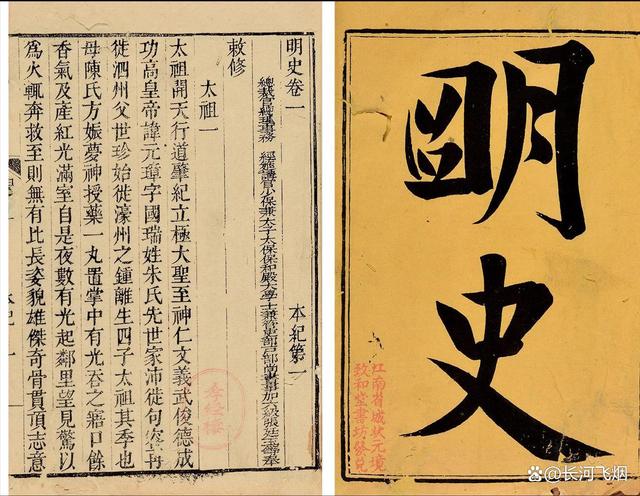 明史
江南省城狀元境
致和堂書坊發兌
明史卷一 本紀第一
總裁官總理事務 經筵講官少保兼太子太保保和殿大學士兼管吏部戶部尚書事加六級張廷玉等奉
敕修
太祖一
太祖開天行道肇紀立極大聖至神仁文義武俊德成
功高皇帝諱元璋字國瑞姓朱氏先世家沛徙句容再
徙泗州父世珍始徙濠州之鍾離生四子太祖其季也
母陳氏方娠夢神授藥一丸置掌中有光吞之寤口餘
香氣及產紅光滿室自是夜數有光起鄰里望見驚以
爲火輒奔救至則無有比長姿貌雄傑奇骨貫頂志意
@长河飞烟